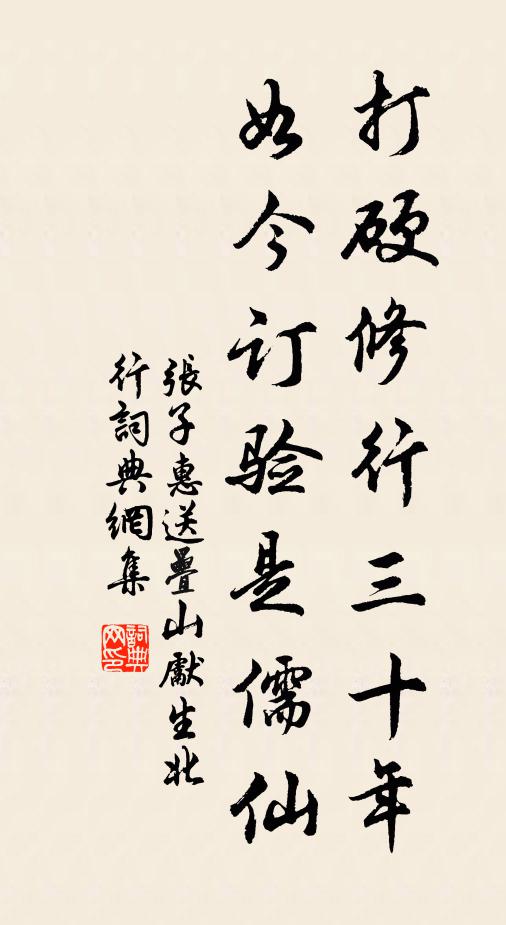 打硬修行三十年
如今订验是儒仙
張子惠送疊山獻生北
行詞典網集
詞典
网印